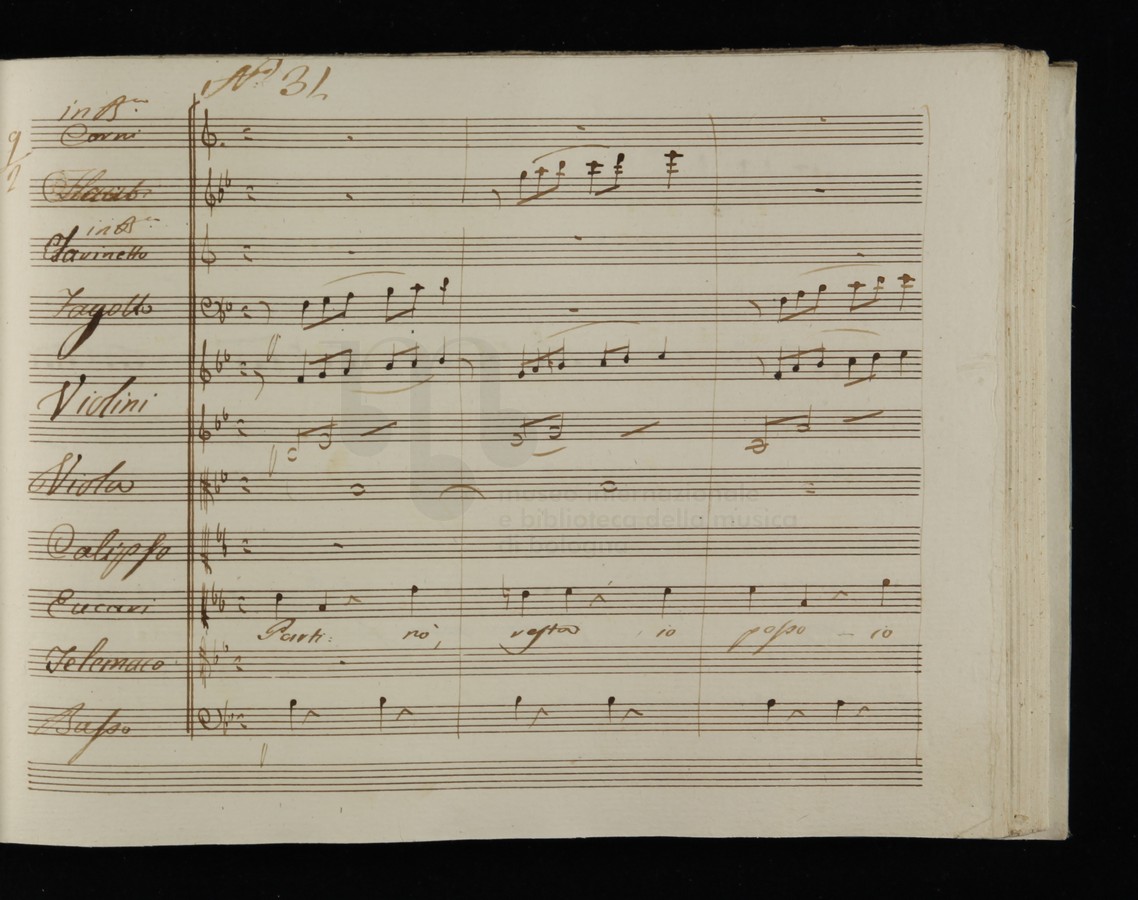 31
in B
Corni
Flauti
in B
Clarinetto
Fagotto
Violini
Viola
Calipso
Eucari
Parti: nò, resta io posso io
Telemaco
Basso
museo internazionale
e biblioteca della musica
di bologna